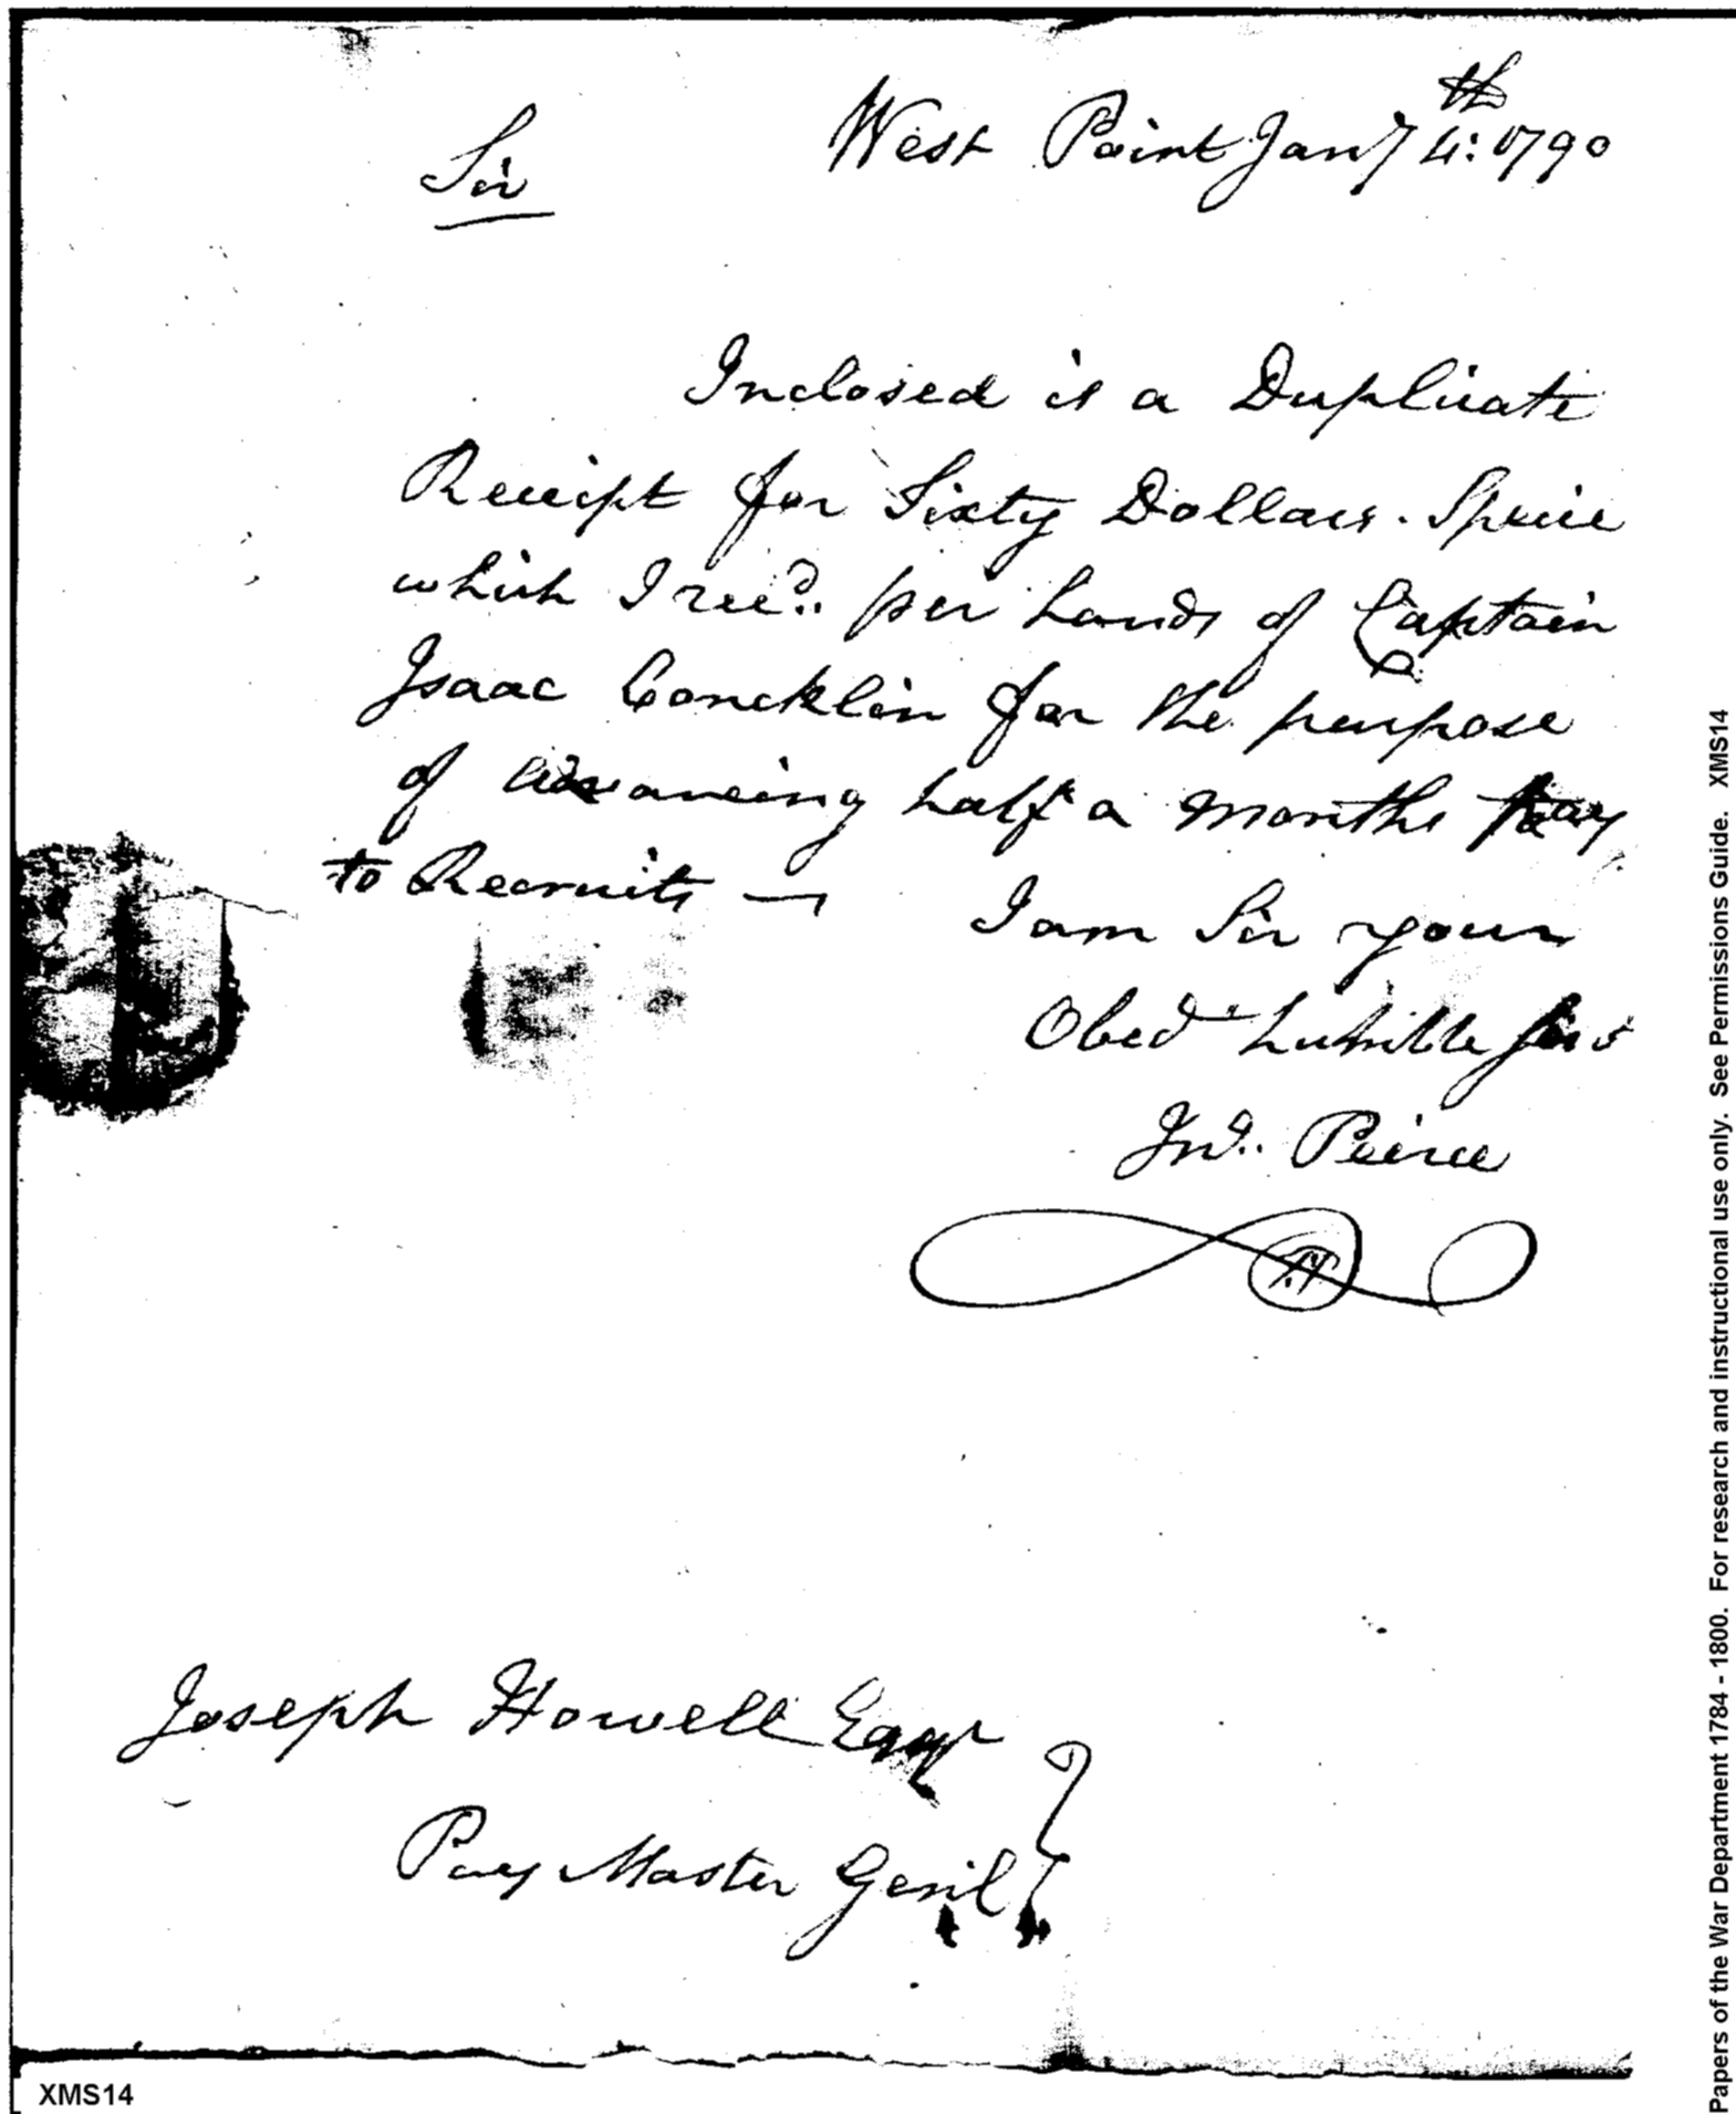 West Point Jany 4th: 1790
Sir
Inclosed is a Duplicate
Receipt for Sixty Dollars. Specie
which I recd.. per hands of Captain
Isaac Concklin for the purpose
of advancing half a months pay
to Recruits —
I am Sir your
Obed humble Serv
Jno.. Peirce
Joseph Howell Esqr
Pay Master Genl
XMS14
Papers of the War Department 1784 - 1800. For research and instructional use only. See Permissions Guide. XMS14